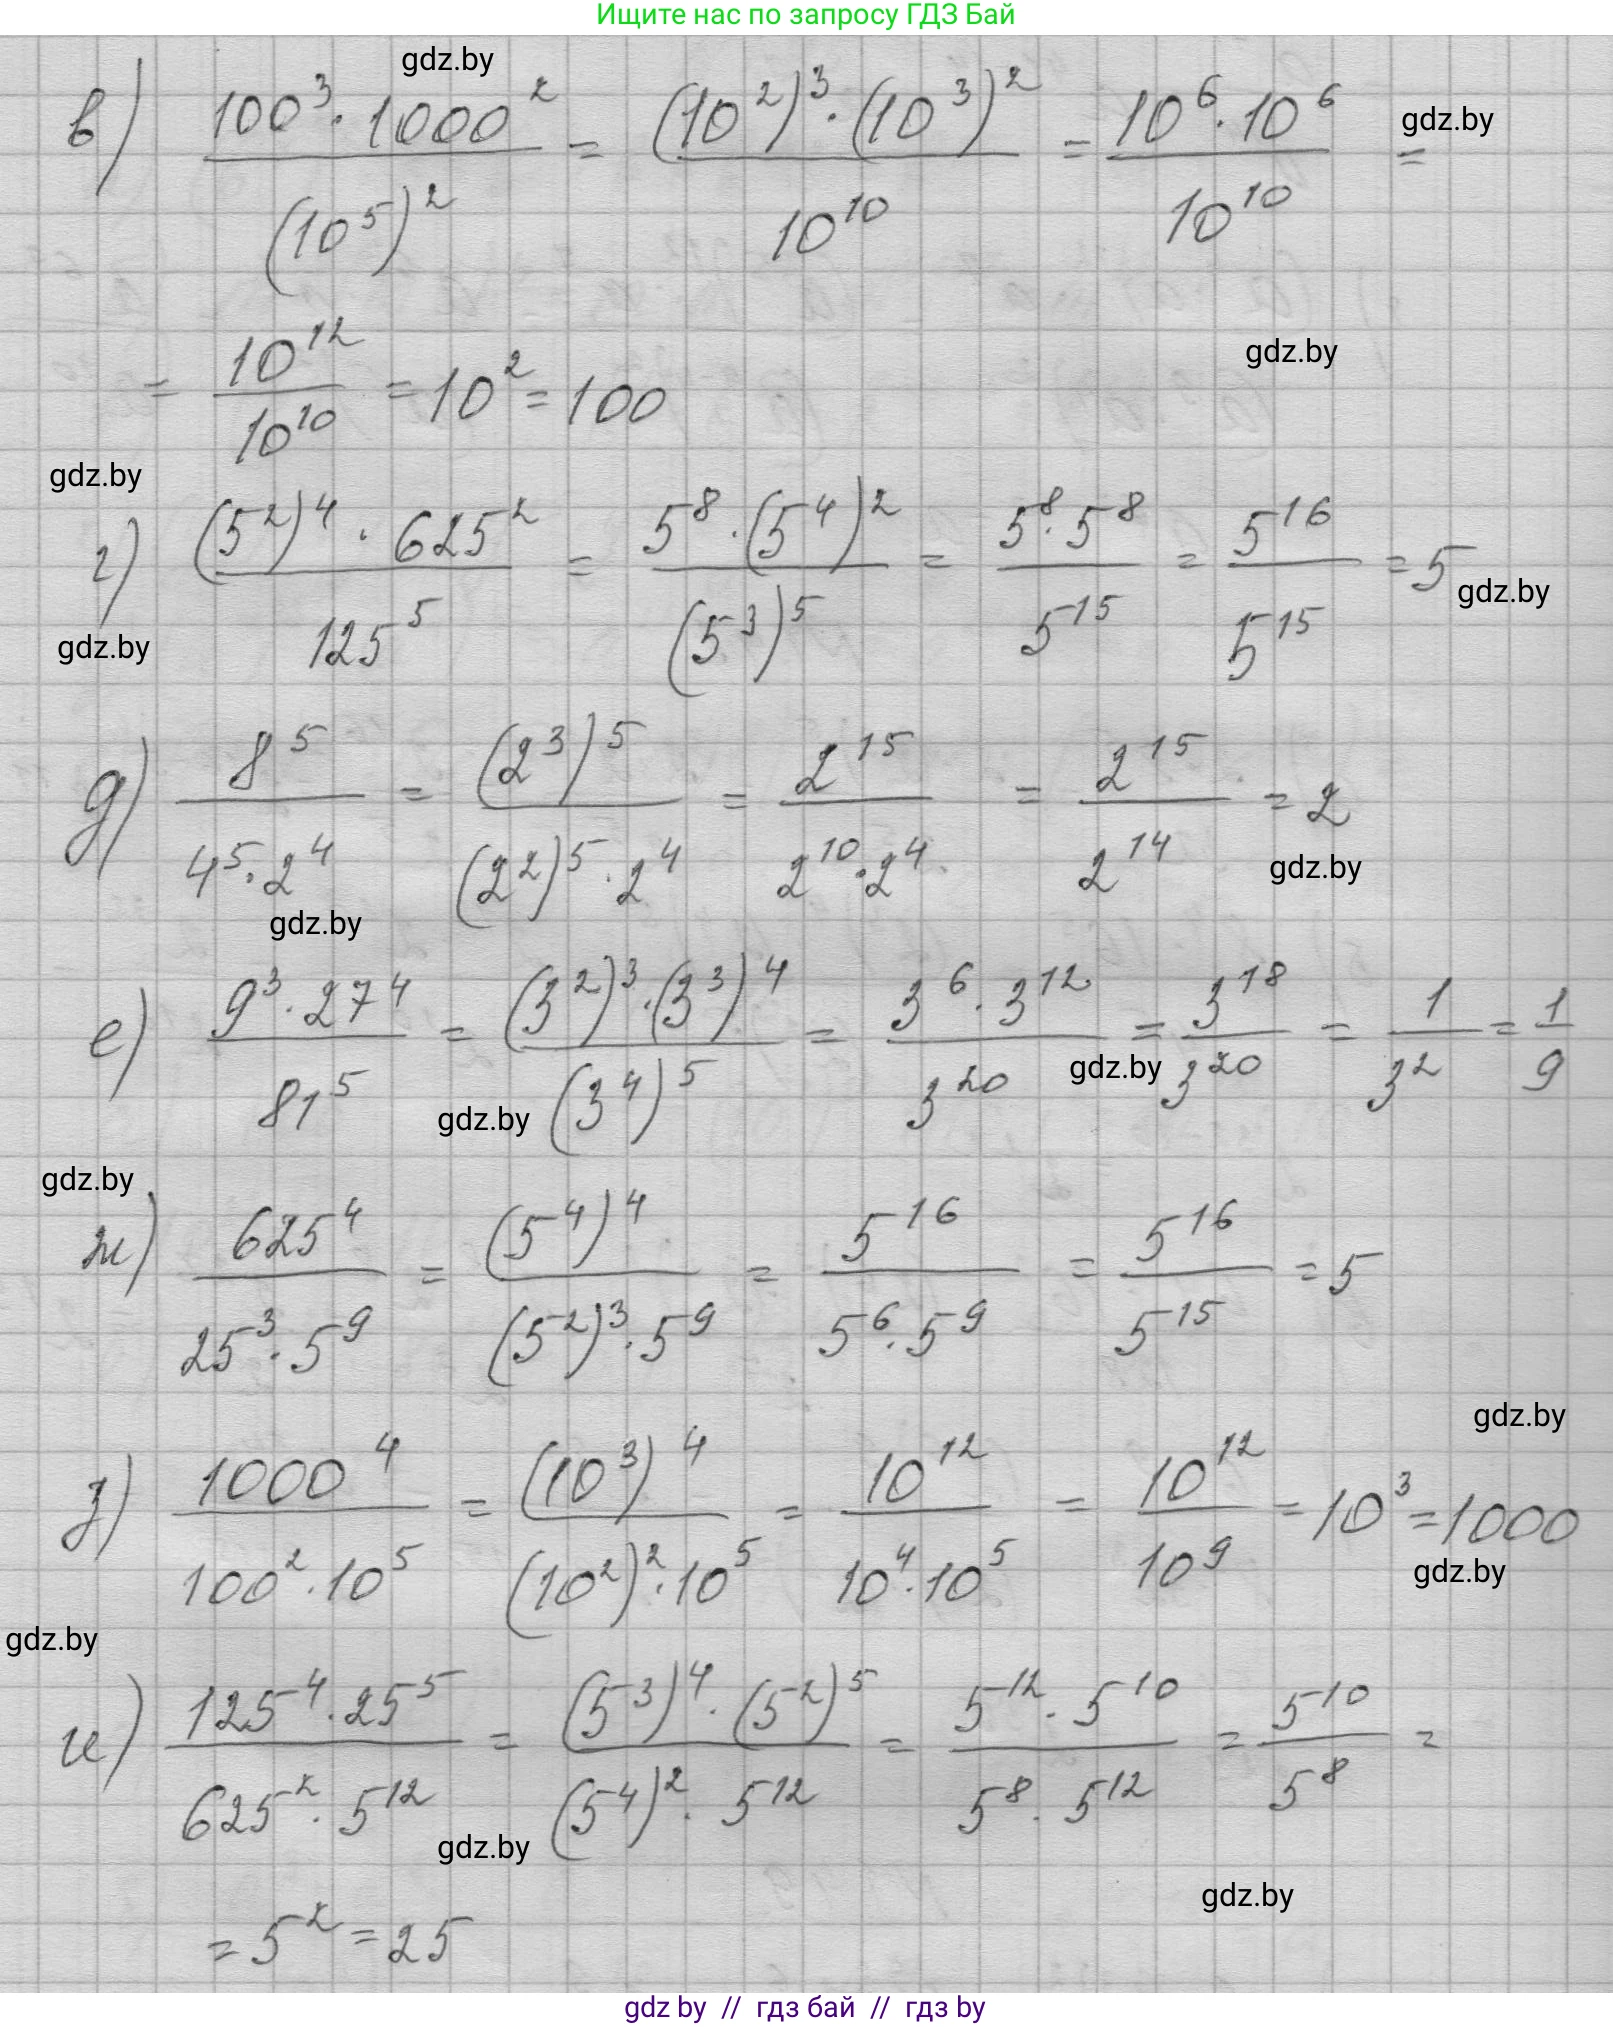 Ищите нас по запросу ГДЗ Бай
gdz.by
в) (100^3 · 1000^2)/((10^5)^2) = ((10^2)^3 · (10^3)^2)/(10^10) = (10^6 · 10^6)/(10^10) =
gdz.by
= 10^12/10^10 = 10^2 = 100
gdz.by
gdz.by
г) ((5^2)^4 · 625^2)/(125^5) = (5^8 · (5^4)^2)/((5^3)^5) = (5^8 · 5^8)/(5^15) = 5^16/5^15 = 5
gdz.by
gdz.by
д) 8^5/(4^5 · 2^4) = (2^3)^5/((2^2)^5 · 2^4) = 2^15/(2^10 · 2^4) = 2^15/2^14 = 2
gdz.by
gdz.by
е) (9^3 · 27^4)/(81^5) = ((3^2)^3 · (3^3)^4)/((3^4)^5) = (3^6 · 3^12)/(3^20) = 3^18/3^20 = 1/3^2 = 1/9
gdz.by
gdz.by
gdz.by
ж) 625^4/(25^3 · 5^9) = (5^4)^4/((5^2)^3 · 5^9) = 5^16/(5^6 · 5^9) = 5^16/5^15 = 5
gdz.by
з) 1000^4/(100^2 · 10^5) = (10^3)^4/((10^2)^2 · 10^5) = 10^12/(10^4 · 10^5) = 10^12/10^9 = 10^3 = 1000
gdz.by
gdz.by
и) (125^4 · 25^5)/(625^2 · 5^12) = ((5^3)^4 · (5^2)^5)/((5^4)^2 · 5^12) = (5^12 · 5^10)/(5^8 · 5^12) = 5^10/5^8 =
gdz.by
gdz.by
= 5^2 = 25
gdz by // гдз бай // гдз by